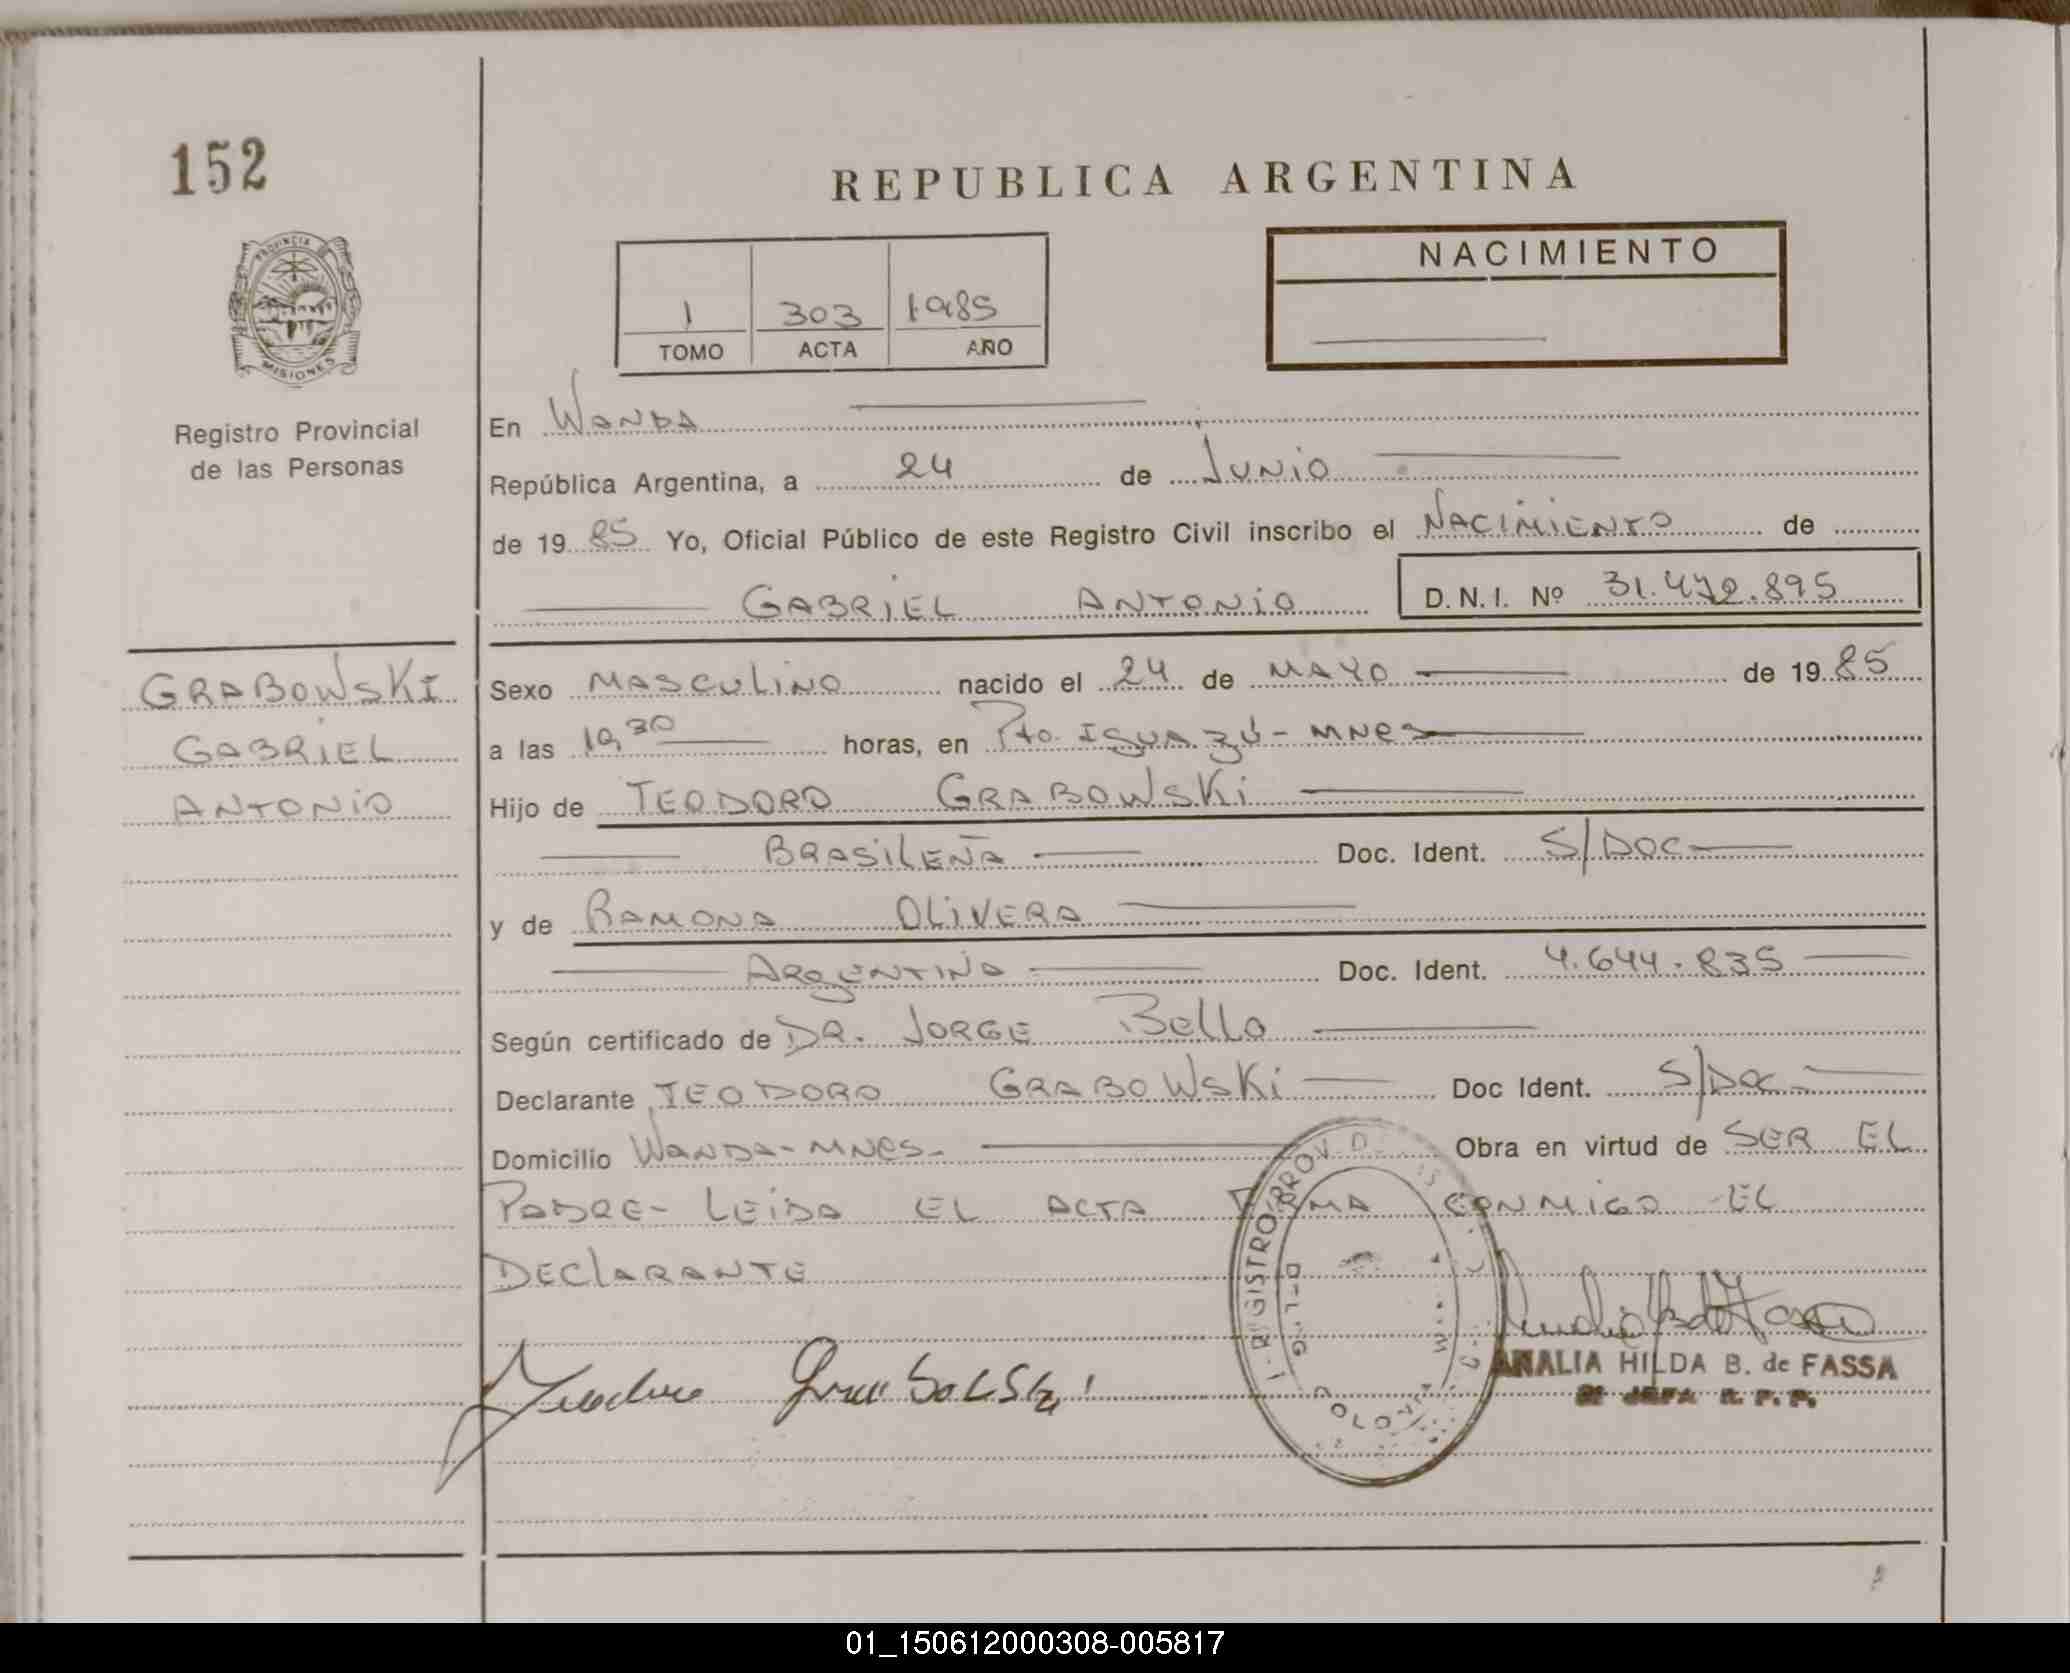 152
REPUBLICA ARGENTINA
PROVINCIA DE
MISIONES
Registro Provincial
de las Personas
1 303 1985
TOMO ACTA AÑO
NACIMIENTO
En WANDA
República Argentina, a 24 de JUNIO
de 1985 Yo, Oficial Público de este Registro Civil inscribo el NACIMIENTO de
GABRIEL ANTONIO D.N.I. Nº 31.472.895
GRABOWSKI
GABRIEL
ANTONIO
Sexo MASCULINO nacido el 24 de MAYO de 1985
a las 19,30 horas, en Pto. IGUAZÚ - MNES
Hijo de TEODORO GRABOWSKI
BRASILEÑA Doc. Ident. S/DOC
y de RAMONA OLIVERA
ARGENTINA Doc. Ident. 4.644.835
Según certificado de DR. JORGE Bello
Declarante TEODORO GRABOWSKI Doc Ident. S/DOC
Domicilio WANDA - MNES - Obra en virtud de SER EL
PADRE - LEIDA EL ACTA FIRMA CONMIGO EL
DECLARANTE
REGISTRO PROV. D
ANALIA HILDA B. de FASSA
JEFA R. P. P.
01_150612000308-005817